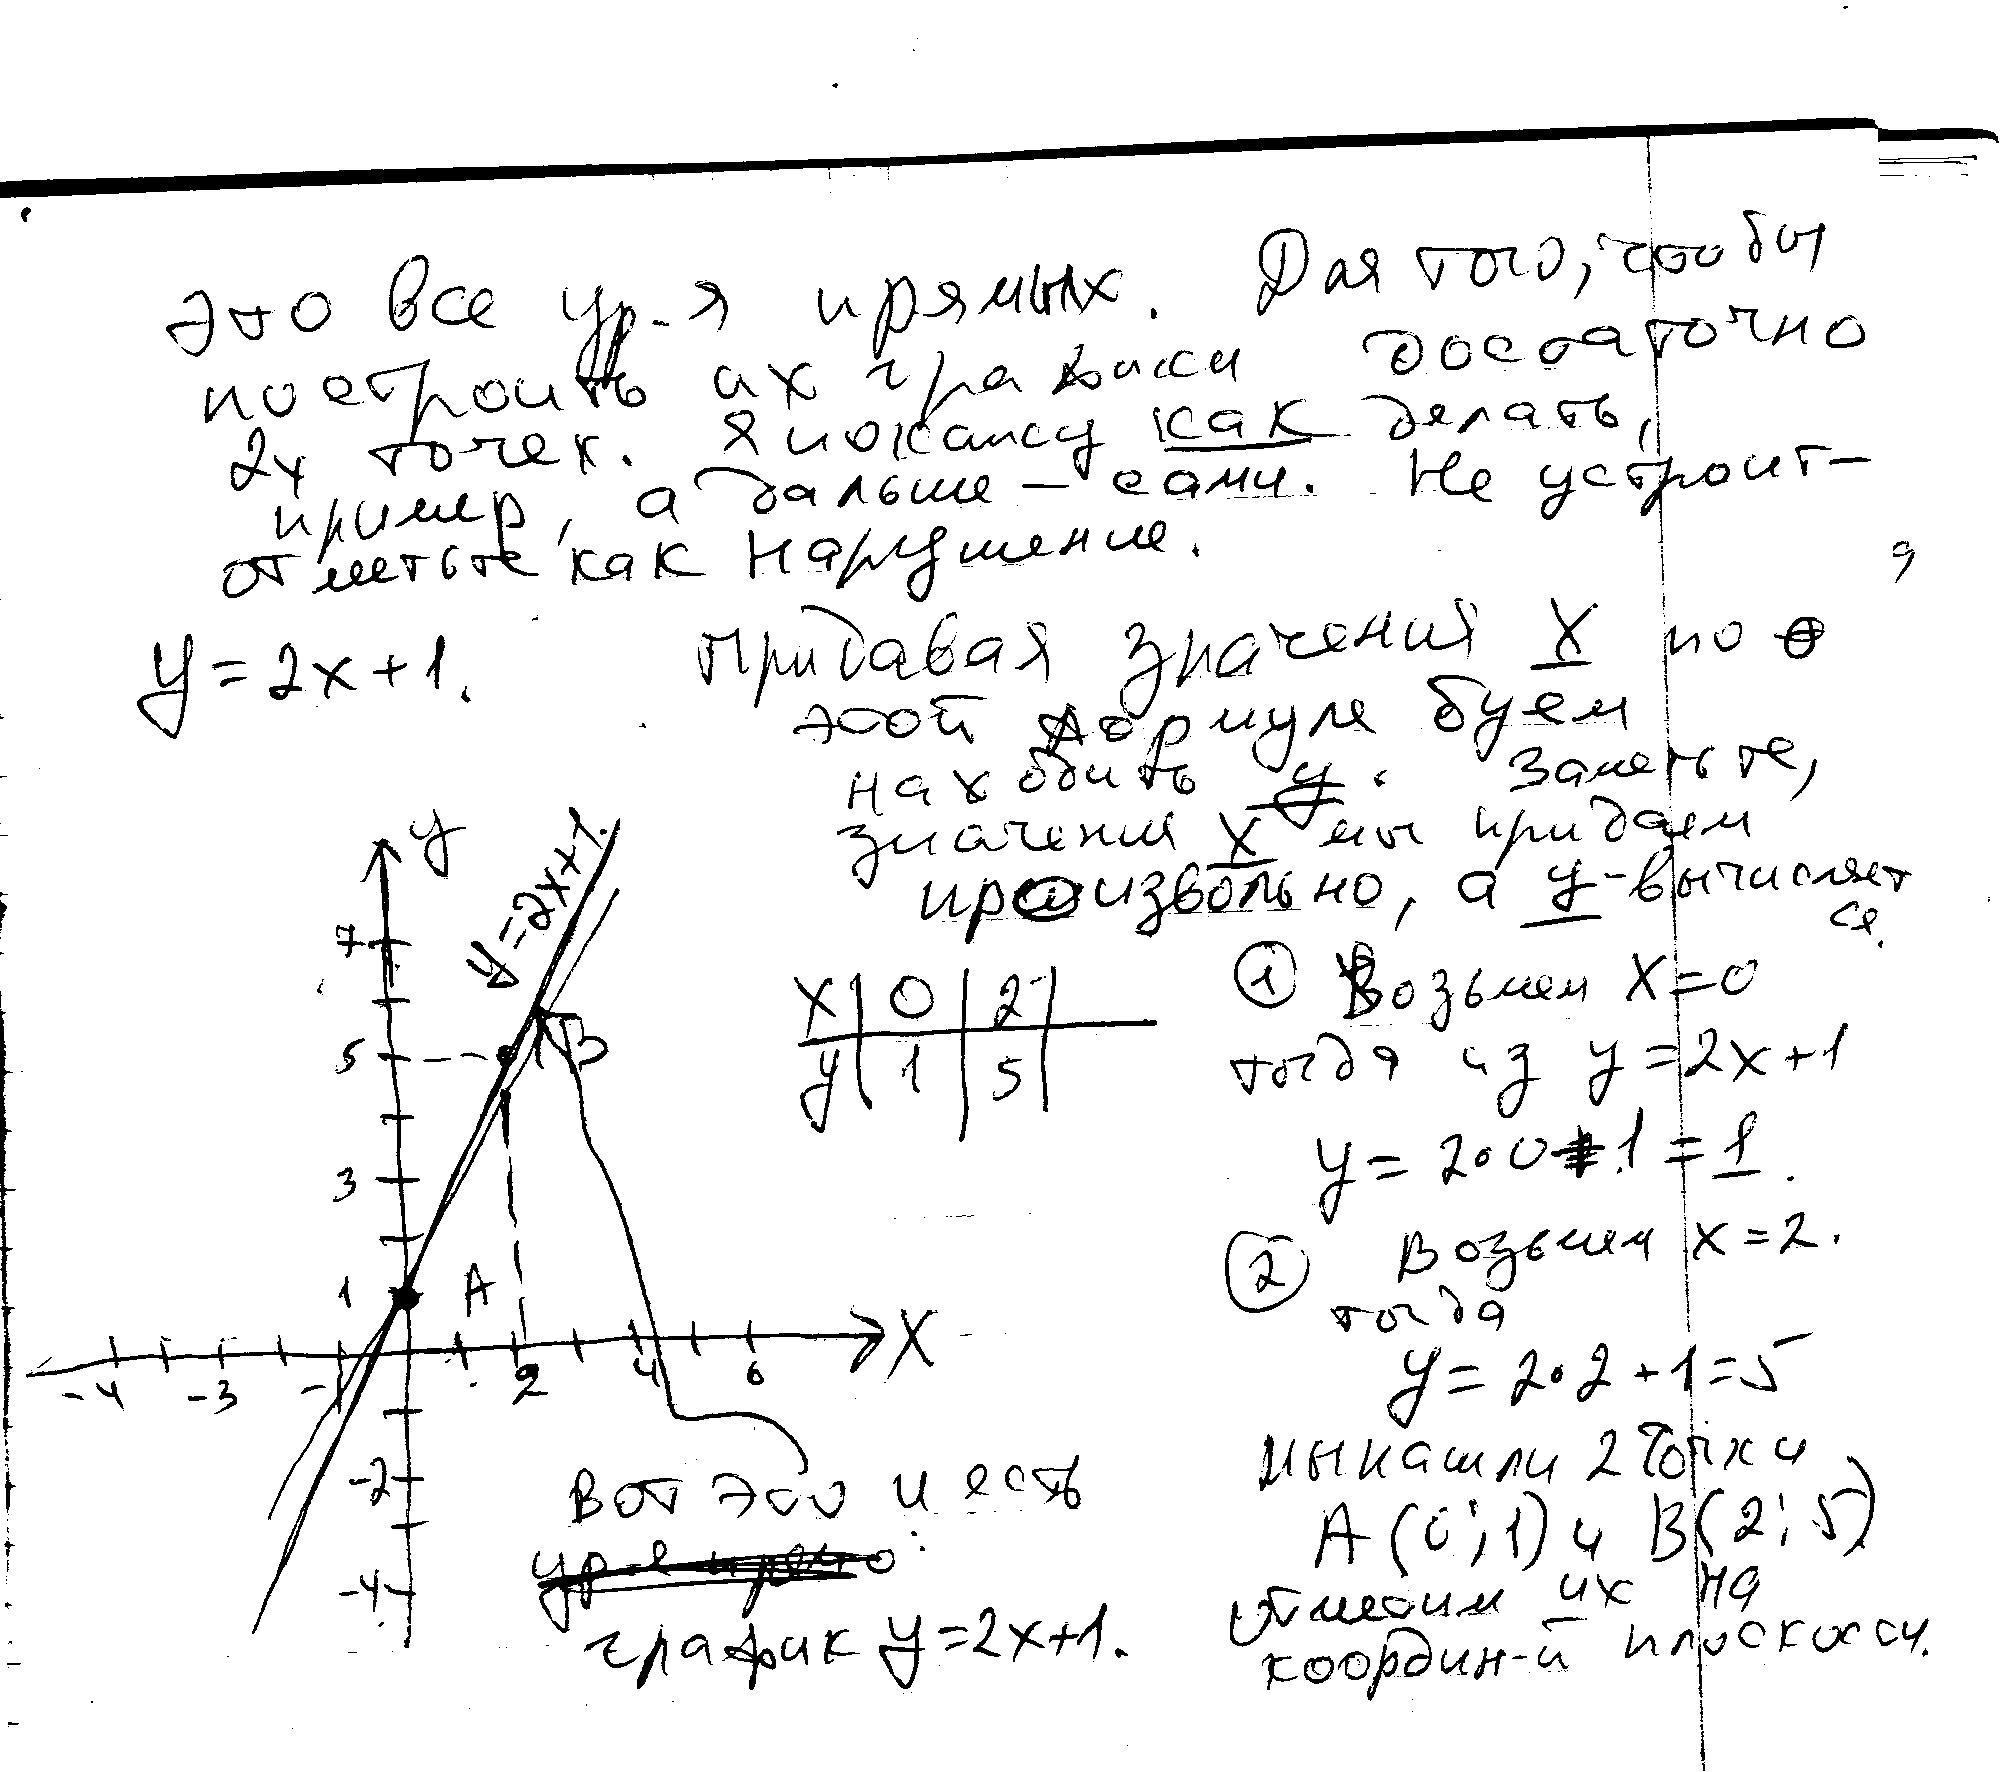 это все ур-я прямых. Для того, чтобы
построить их графики достаточно
2х точек. Я покажу как делать,
пример, а дальше - сами. Не устроит-
отметьте как нарушение.
y = 2x + 1. Придавая значения x по
этой формуле буем
находить y. Заметьте,
значения x мы придаем
произвольно, а y - вычисляет
ся.
x | 0 | 2
y | 1 | 5
① Возьмем x = 0
тогда из y = 2x + 1
y = 2·0 + 1 = 1.
② Возьмем x = 2.
тогда
y = 2·2 + 1 = 5
мы нашли 2 точки
A (0; 1) и B (2; 5)
Отметим их на
координ-й плоскости.
y
y = 2x + 1.
7
5
B
3
1
A
x
-4 -3 -1 2 4 6
-2
-4
Вот это и есть
график y = 2x + 1.